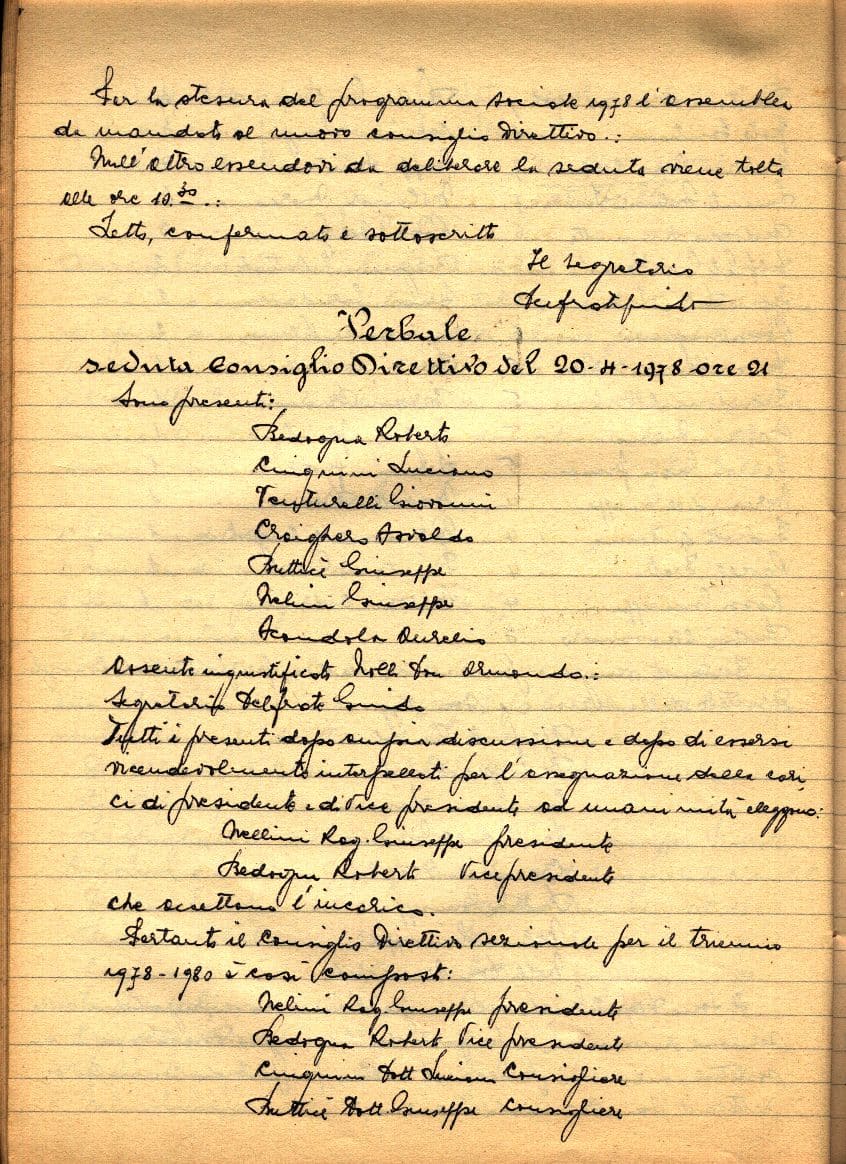 Per la stesura del programma sociale 1978 l'assemblea
da mandato al nuovo consiglio Direttivo.:
Null'altro essendovi da deliberare la seduta viene tolta
alle ore 10.30.:
Letto, confermato e sottoscritto
Il segretario
Verbale
seduta Consiglio Direttivo del 20-4-1978 ore 21
Sono presenti:
Bedogna Roberto
Cinquini Luciano
Venturelli Giovanni
Craighero Osvaldo
Butticè Giuseppe
Nelini Giuseppe
Scandola Aurelio
assente ingiustificato Nolli Don Armando.:
Segretario Delfrate Guido
Tutti i presenti dopo ampia discussione e dopo di essersi
vicendevolmente interpellati per l'assegnazione delle cari,
ci di presidente e di Vice presidente ad unanimità eleggono:
Nellini Rag. Giuseppe presidente
Bedogna Roberto Vicepresidente
che accettano l'incarico.
Pertanto il Consiglio Direttivo sezionale per il triennio
1978-1980 è così composto:
Nelini Rag. Giuseppe presidente
Bedogna Roberto Vice presidente
Cinquini Dott Luciano Consigliere
Butticè Dott Giuseppe Consigliere